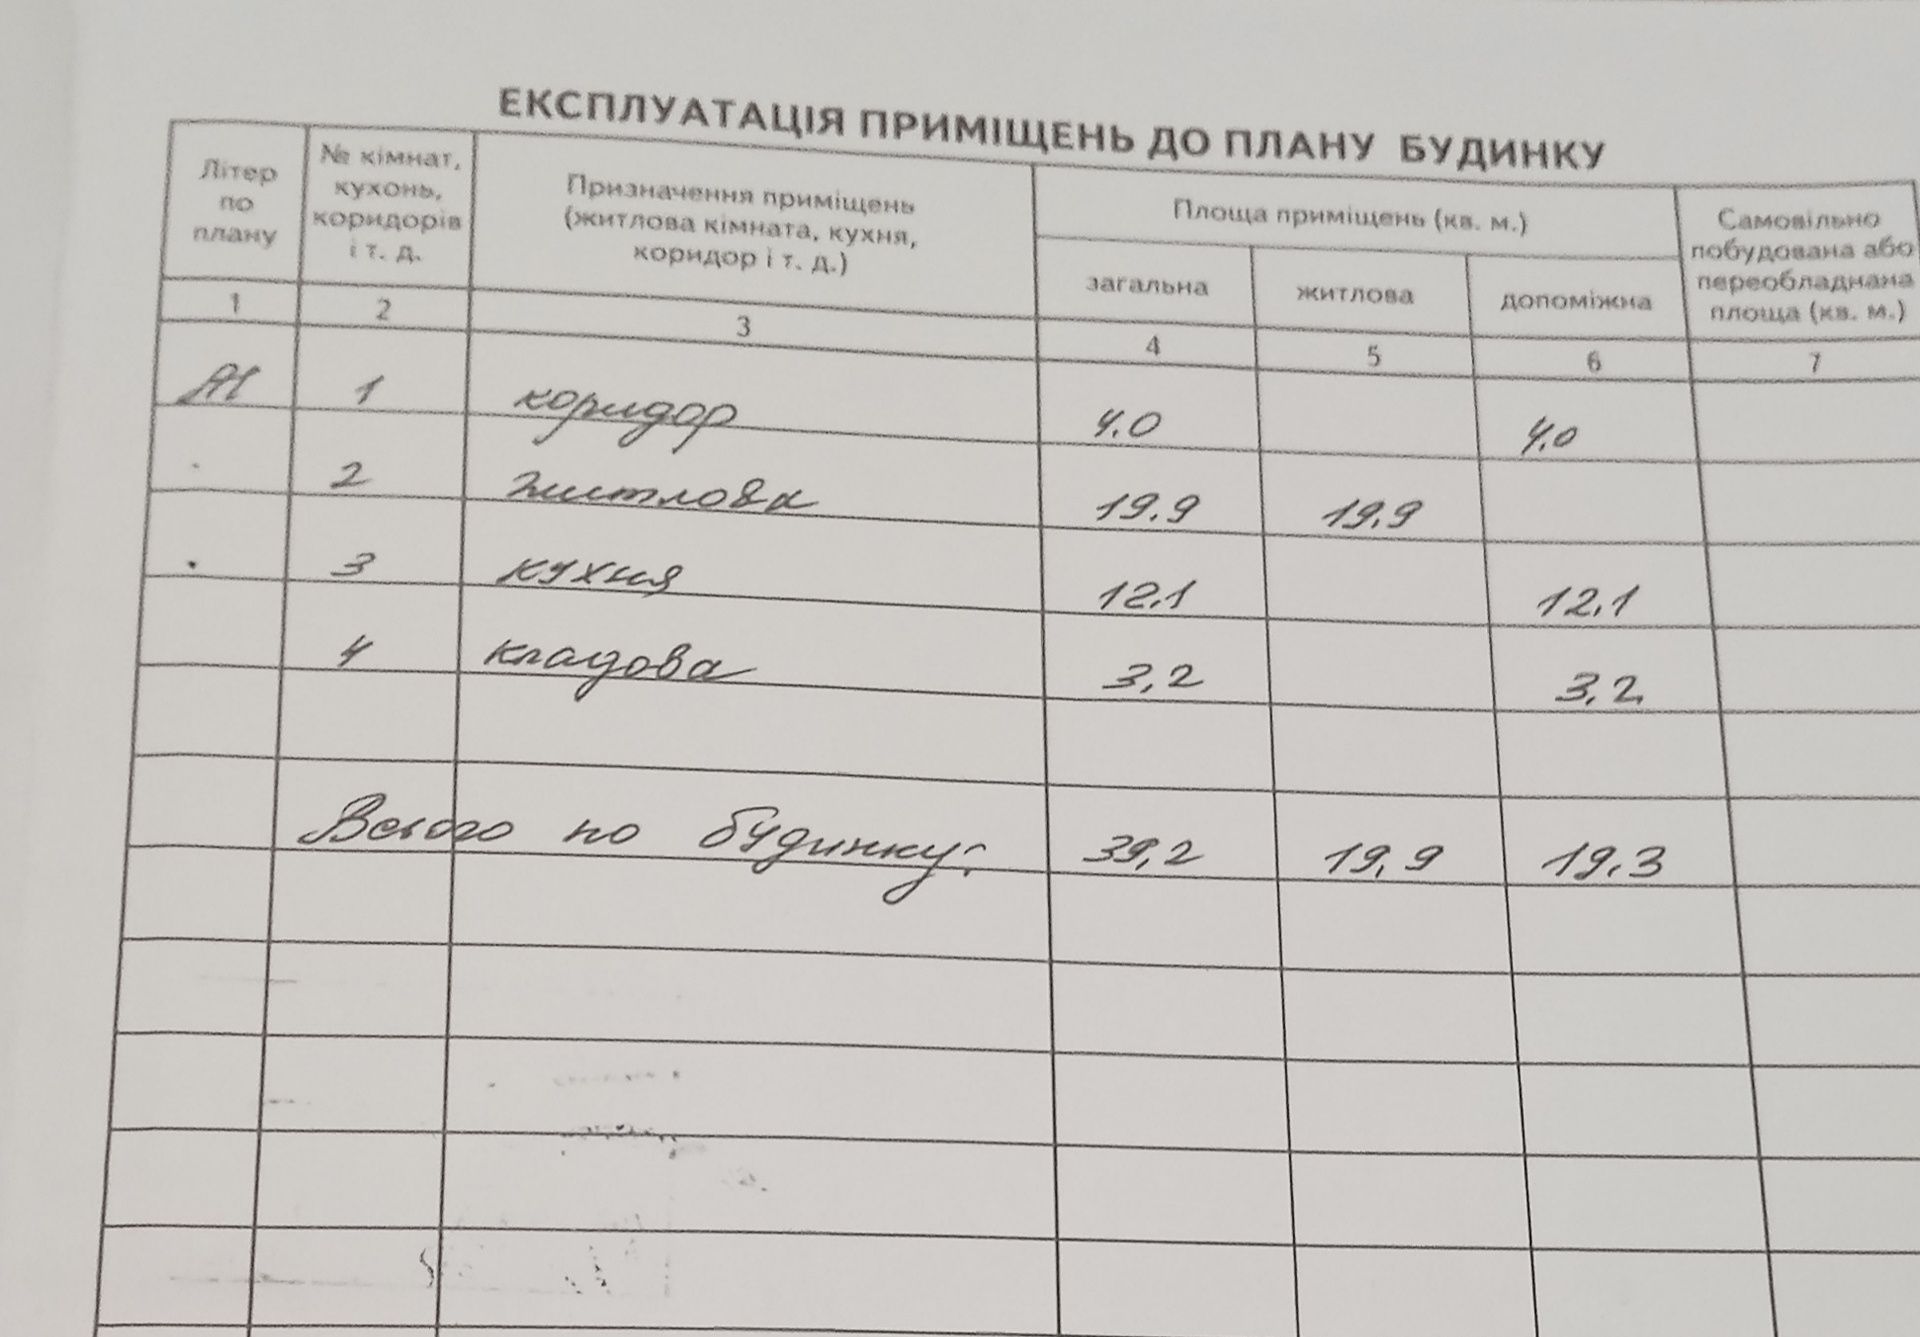 ЕКСПЛУАТАЦІЯ ПРИМІЩЕНЬ ДО ПЛАНУ БУДИНКУ
Літер по плану
№ кімнат, кухонь, коридорів і т. д.
Призначення приміщень (житлова кімната, кухня, коридор і т. д.)
Площа приміщень (кв. м.)
загальна житлова допоміжна
Самовільно побудована або переобладнана площа (кв. м.)
1 2 3 4 5 6 7
1 коридор 4.0 4,0
2 житлова 19.9 19,9
3 кухня 12.1 12,1
4 кладова 3,2 3,2
Всього по будинку: 39,2 19,9 19,3